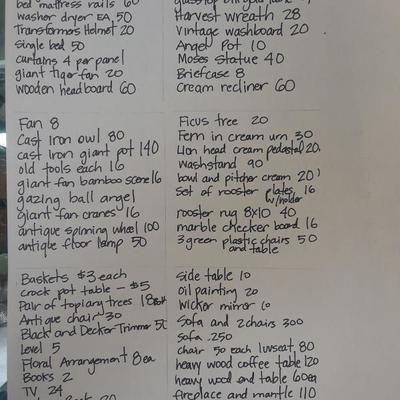 bed mattress rails 60
washer dryer EA, 50
Transformers Helmet 20
single bed 50
curtains 4 per panel
giant tiger fan 20
wooden headboard 60
Harvest wreath 28
Vintage washboard 20
Angel Pot 10
Moses statue 40
Briefcase 8
Cream recliner 60
Fan 8
Cast Iron owl 80
cast iron giant pot 140
old tools each 16
giant fan bamboo scene 16
gazing ball angel
giant fan cranes 16
antique spinning wheel 100
antique floor lamp 50
Ficus tree 20
Fern in cream urn 30
Lion head cream pedestal 20
washstand 90
bowl and pitcher cream 20
set of rooster plates 16
w/holder
rooster rug 8x10 40
marble checker board 16
3 green plastic chairs 50
and table
Baskets $3 each
crock pot table - $5
Pair of topiary trees 18
Antique chair 30
Black and Decker Trimmer 50
Level 5
Floral Arrangement 8ea
Books 2
TV 24
side table 10
oil painting 20
wicker mirror 10
Sofa and 2 chairs 300
Sofa 250
chair 50 each luvseat, 80
heavy wood coffee table 120
heavy wood end table 60ea
fireplace and mantle 110